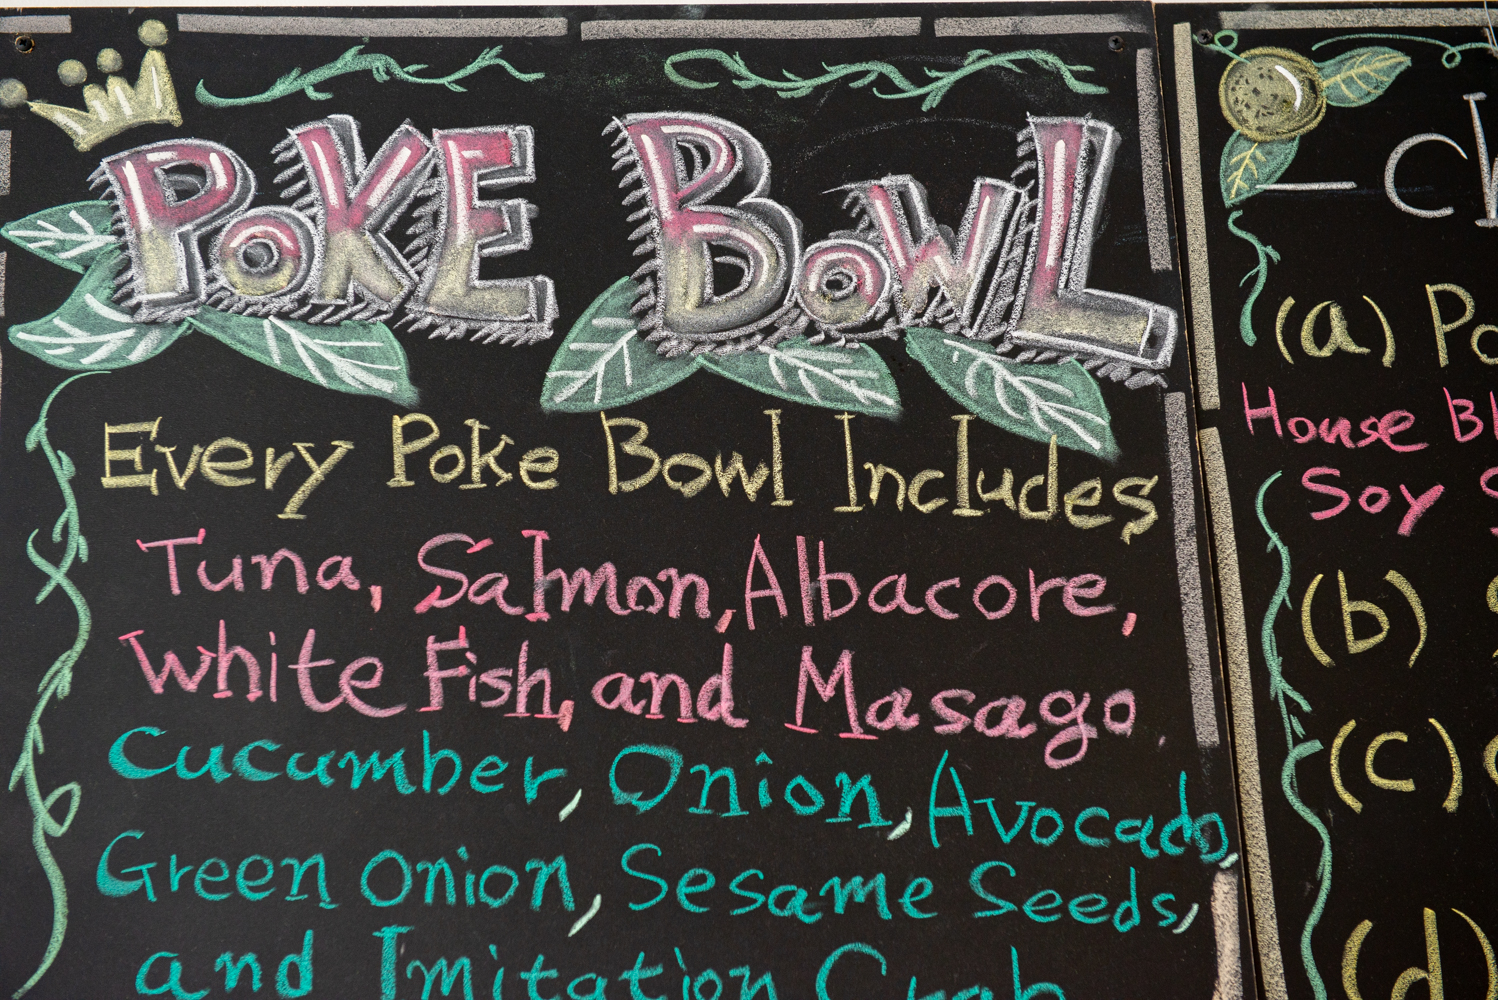 POKE BOWL
Every Poke Bowl Includes
Tuna, Salmon, Albacore,
White Fish, and Masago
Cucumber, Onion, Avocado,
Green Onion, Sesame Seeds,
and Imitation Crab
(a)
House
Soy
(b)
(c)
(d)